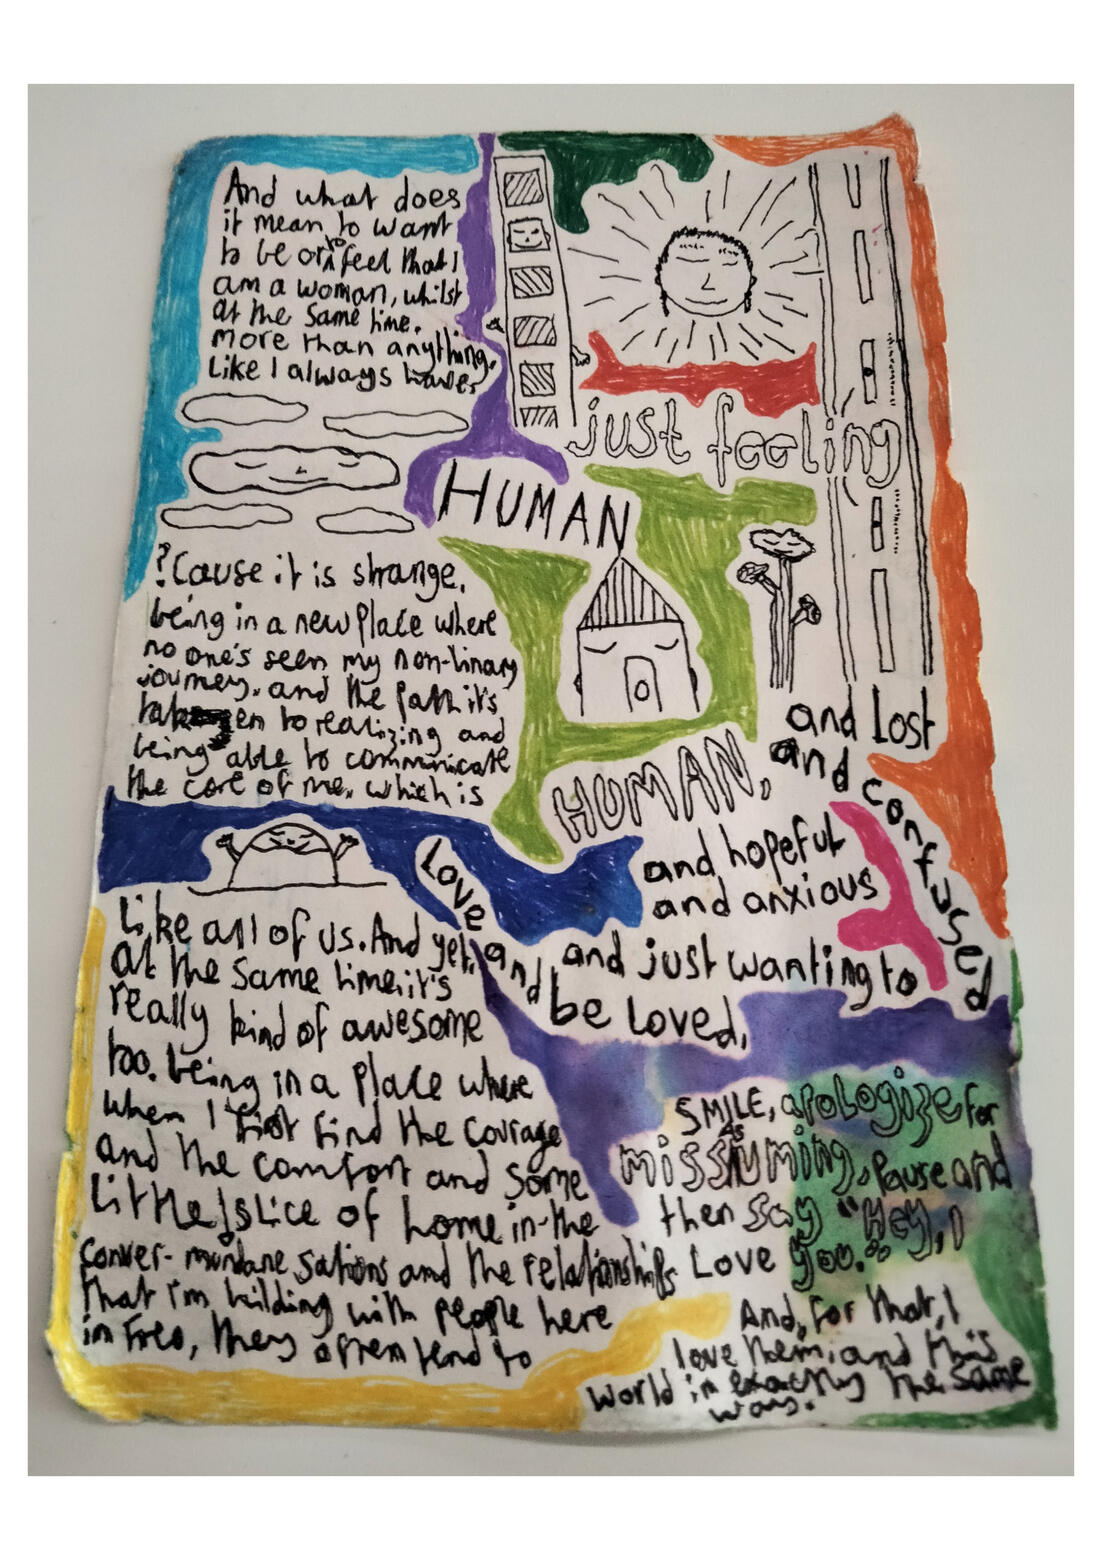 And what does
it mean to want
to be or to feel that I
am a woman, whilst
at the same time,
more than anything,
like I always have,
just feeling
HUMAN
?Cause it is strange,
being in a new place where
no one's seen my non-binary
journey, and the path it's
taken to realizing and
being able to communicate
the core of me, which is
HUMAN,
and lost
and confused
and hopeful
and anxious
and just wanting to
be loved,
Love and
Like all of us. And yet,
at the same time, it's
really kind of awesome
too, being in a place where
when I first find the courage
and the comfort and some
little slice of home in the
conver- mundane sations and the relationships
that I'm building with people here
in Freo, they often tend to
SMILE, apologize for
missuming, pause and
As
then say "Hey, I
Love you."
And, for that, I
love them, and this
world in exactly the same
way.